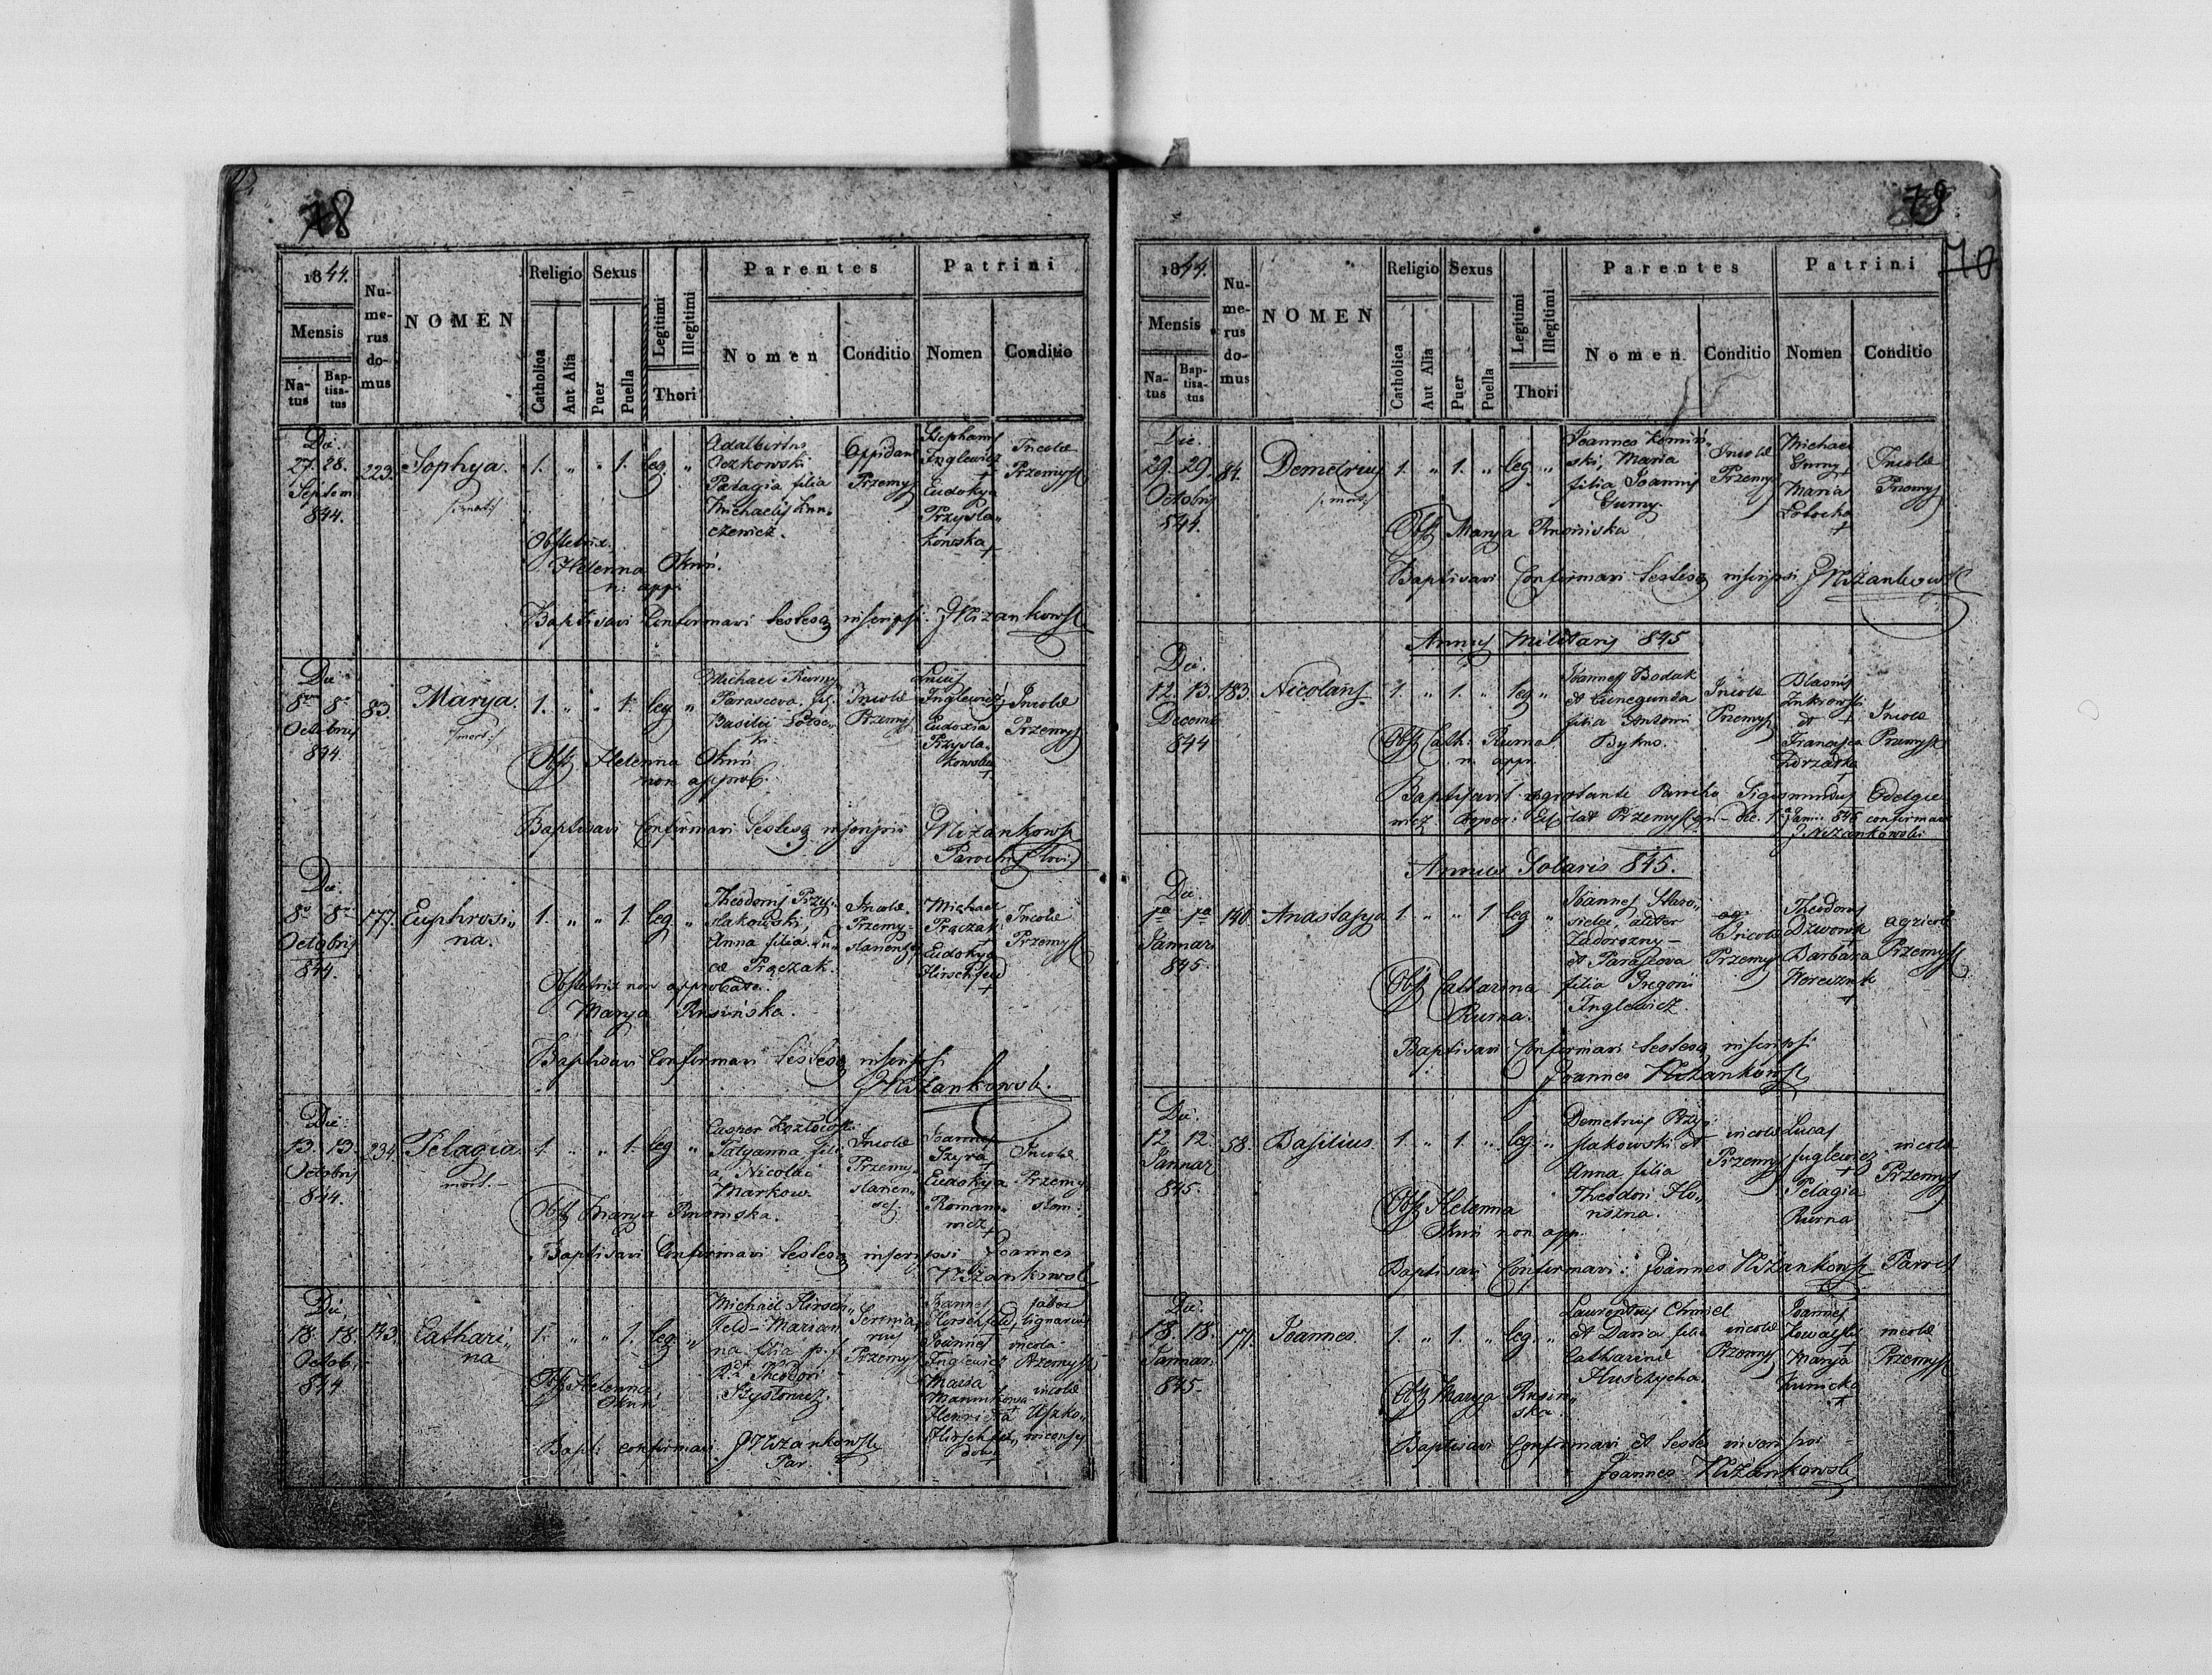 78
1844.
Mensis
Na-
tus
Bap-
tisa-
tus
Nu-
me-
rus
do-
mus
NOMEN
Religio
Catholica
Aut Alia
Sexus
Puer
Puella
Legitimi
Illegitimi
Thori
Parentes
Nomen
Conditio
Patrini
Nomen
Conditio
Die
27. 28.
Septem
844.
223.
Sophya.
1. " " 1. leg. "
Adalbertus
Pelagia filia
Michaelis
Oppidani
Przemysl
Stephanus
Inglewicz
+
Eudokya
Przysla-
kowska
+
Incolae
Przemysl
Obstetrix
Helenna Okuń.
n. app.
Baptisavi Confirmavi testesq inscripsi. JNizankowski
Die
8va 8a
Octobris
844.
83.
Marya.
1. " " 1. leg "
Michael Kurny
Parasceva, fil.
Basilii
Incolae
Przemysl
Lucas
Inglewicz
Eudoxia
Przysla-
kowska
+
Incolae
Przemysl
Obst Helenna Okuń
non approb.
Baptisavi Confirmavi testesq inscripsi JNizankowski
Parochus loci
Die
8a 8a
Octobris
844.
177.
Euphrosi-
na.
1. " " 1. leg. "
Theodorus Przy-
slakowski,
Anna filia Lu-
cae Prączak.
Incolae
Przemy-
slanenses
Michael
Prączak
+
Eudokya
Hirschfeld
+
Incolae
Przemysl
Obstetrix non approbata.
Marya Rusińska.
Baptisavi Confirmavi testesq inscripsi
JNizankowski.
Die
13. 13.
Octobris
844.
234.
Pelagia
mort.
1. " " 1. leg "
Casper Kozłowski
Tatyanna fili-
a Nicolai
Markow
Incolae
Przemy-
slanen-
ses.
Joannes
Szyra
+
Eudokya
Romano-
wicz
+
Incolae
Przemy-
slan.
Obst Marya Rusinska.
Baptisavi Confirmavi testesq inscripsi Joannes
Nizankowski
Die
18. 18.
Octob.
844
143.
Cathari-
na
1. " " 1. leg. "
Michael Hirsch-
feld - Marian-
na filia p. f.
Rdi Theodori
Przemysl
Joannes
Hirschfeld,
Joannes
Inglewicz
Maria
Henrietta
Hirschfel-
dow
+
faber
lignarius
incola
Przemysl
incolae
Uszko-
wicenses
Obst Helenna
Okuń
Bapt: confirmavi JNizankowski
Par.
79
70
1844.
Mensis
Na-
tus
Bap-
tisa-
tus
Nu-
me-
rus
do-
mus
NOMEN
Religio
Catholica
Aut Alia
Sexus
Puer
Puella
Legitimi
Illegitimi
Thori
Parentes
Nomen
Conditio
Patrini
Nomen
Conditio
Die
29. 29.
Octobris
844.
84.
Demetrius
1. " 1. " leg "
Joannes Komiń-
ski, Maria
filia Joannis
Gurny.
Incolae
Przemysl
Michael
Gurny
+
Maria
+
Incolae
Przemysl
Obst Marya Rusinska
Baptisavi Confirmavi testesq inscripsi JNizankowski
Annus Militaris 845
Die
12. 13.
Decemb
844
183.
Nicolaus.
1. " 1. " leg "
Joannes Bodak
et Cunegunda
filia Antoni
Bykus.
Incolae
Przemysl
Blasius
Zukrowski
et +
Francisca
+
Incolae
Przemysl
Obst Cath: Kurna
n. appr.
Baptisavit aegrotante Parocho Sigismundus
Die 1a Janu: 845 confirmavi
J Nizankowski
Annus Solaris 845.
Die
1a 1a
Januar
845.
140.
Anastasya
1. " " 1 leg "
Joannes
aliter
Zadorozny -
et Parasceva
filia Gregorii
Inglewicz.
Przemysl
Theodorus
Dzwonik
+
Barbara
+
agricolae
Przemysl
Obst Catharina
Kurna.
Baptisavi Confirmavi testesq inscripsi
Joannes Nizankowski
Die
12. 12.
Januar
845.
58.
Basilius
1. " 1. " leg. "
Demetrius Przy-
slakowski et
Anna filia
Theodori
incolae
Przemysl
Lucas
Inglewicz
+
Pelagia
Kurna
incolae
Przemysl
Obst Helenna
Okuń non app.
Baptisavi Confirmavi: Joannes Nizankowski Paroch
Die
18. 18.
Januar
845.
177.
Joannes.
1. " 1. " leg. "
Laurentius Chmiel
et Daria filia
Catharinae
Huszczycha
incolae
Przemysl
Joannes
Kowalski
Marya
Kunicka
+
incolae
Przemysl
Obst Marya Rusin-
ska.
Baptisavi Confirmavi et testes inscripsi
Joannes Nizankowski